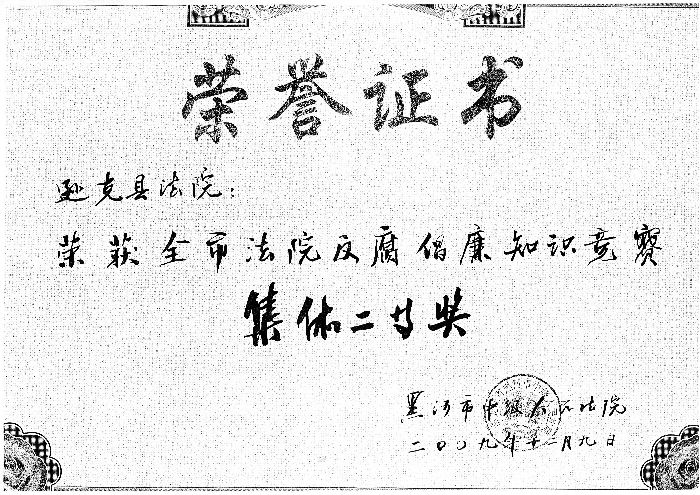 荣誉证书
逊克县法院：
荣获全市法院反腐倡廉知识竞赛
集体二等奖
黑河市中级人民法院
二〇〇九年十二月九日